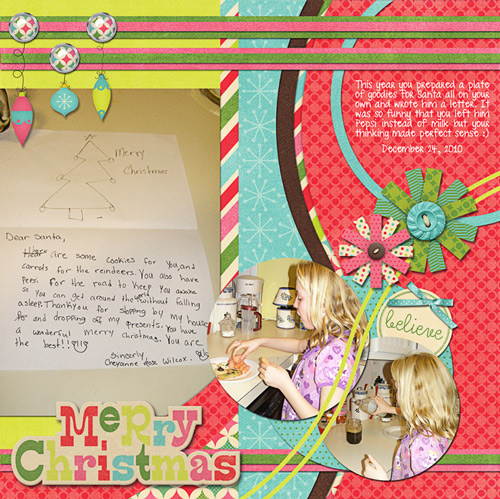 This year you prepared a plate
of goodies for Santa all on your
own and wrote him a letter. It
was so funny that you left him
Pepsi instead of milk but your
thinking made perfect sense :)
December 24, 2010
Merry
Christmas
Dear Santa,
are some cookies for you, and
carrots for the reindeers. You also have
pepsi for the road to keep you awake
so you can get around the world without falling
asleep. Thankyou for stopping by my house
for and dropping off my presents. You have
a wonderful merry christmas. You are
the best!!
Sincerly,
Cheyanne Rose Wilcox.
believe
Merry
Christmas